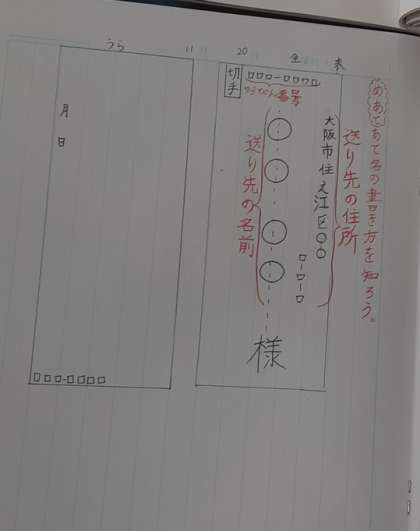 めあて あて名の書き方を知ろう。
表
送り先の住所
大阪市住之江区〇〇
□-□-□
20
切手
□□□-□□□□
ゆうびん番号
送り先の名前
様
うら
11
月
日
□□□-□□□□